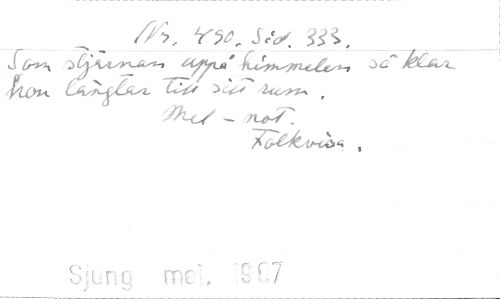 Nr. 490. Sid. 333.
Som stjärnan uppå himmelen så klar
hon längtar till sitt rum.
Mel - not.
Folkvisa.
Sjung mel. 1967